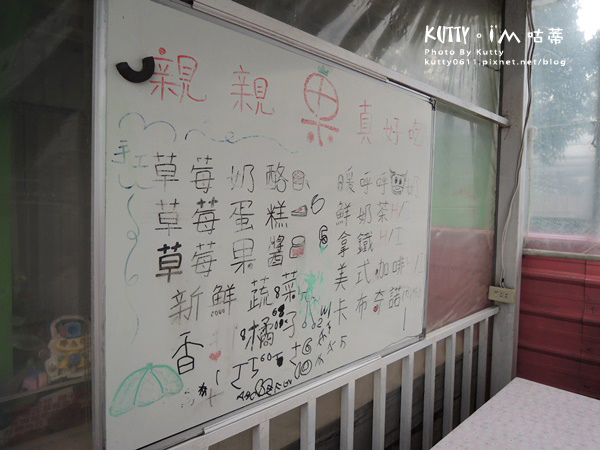 KUTTY。i'M 咕蒂
Photo By Kutty
kutty0611.pixnet.net/blog
親親果真好吃
手工
草莓奶酪
草莓蛋糕
草莓果醬
新鮮蔬菜
香橘子
暖呼呼
鮮奶茶H/I
拿鐵H/I
美式咖啡H/I
卡布奇諾